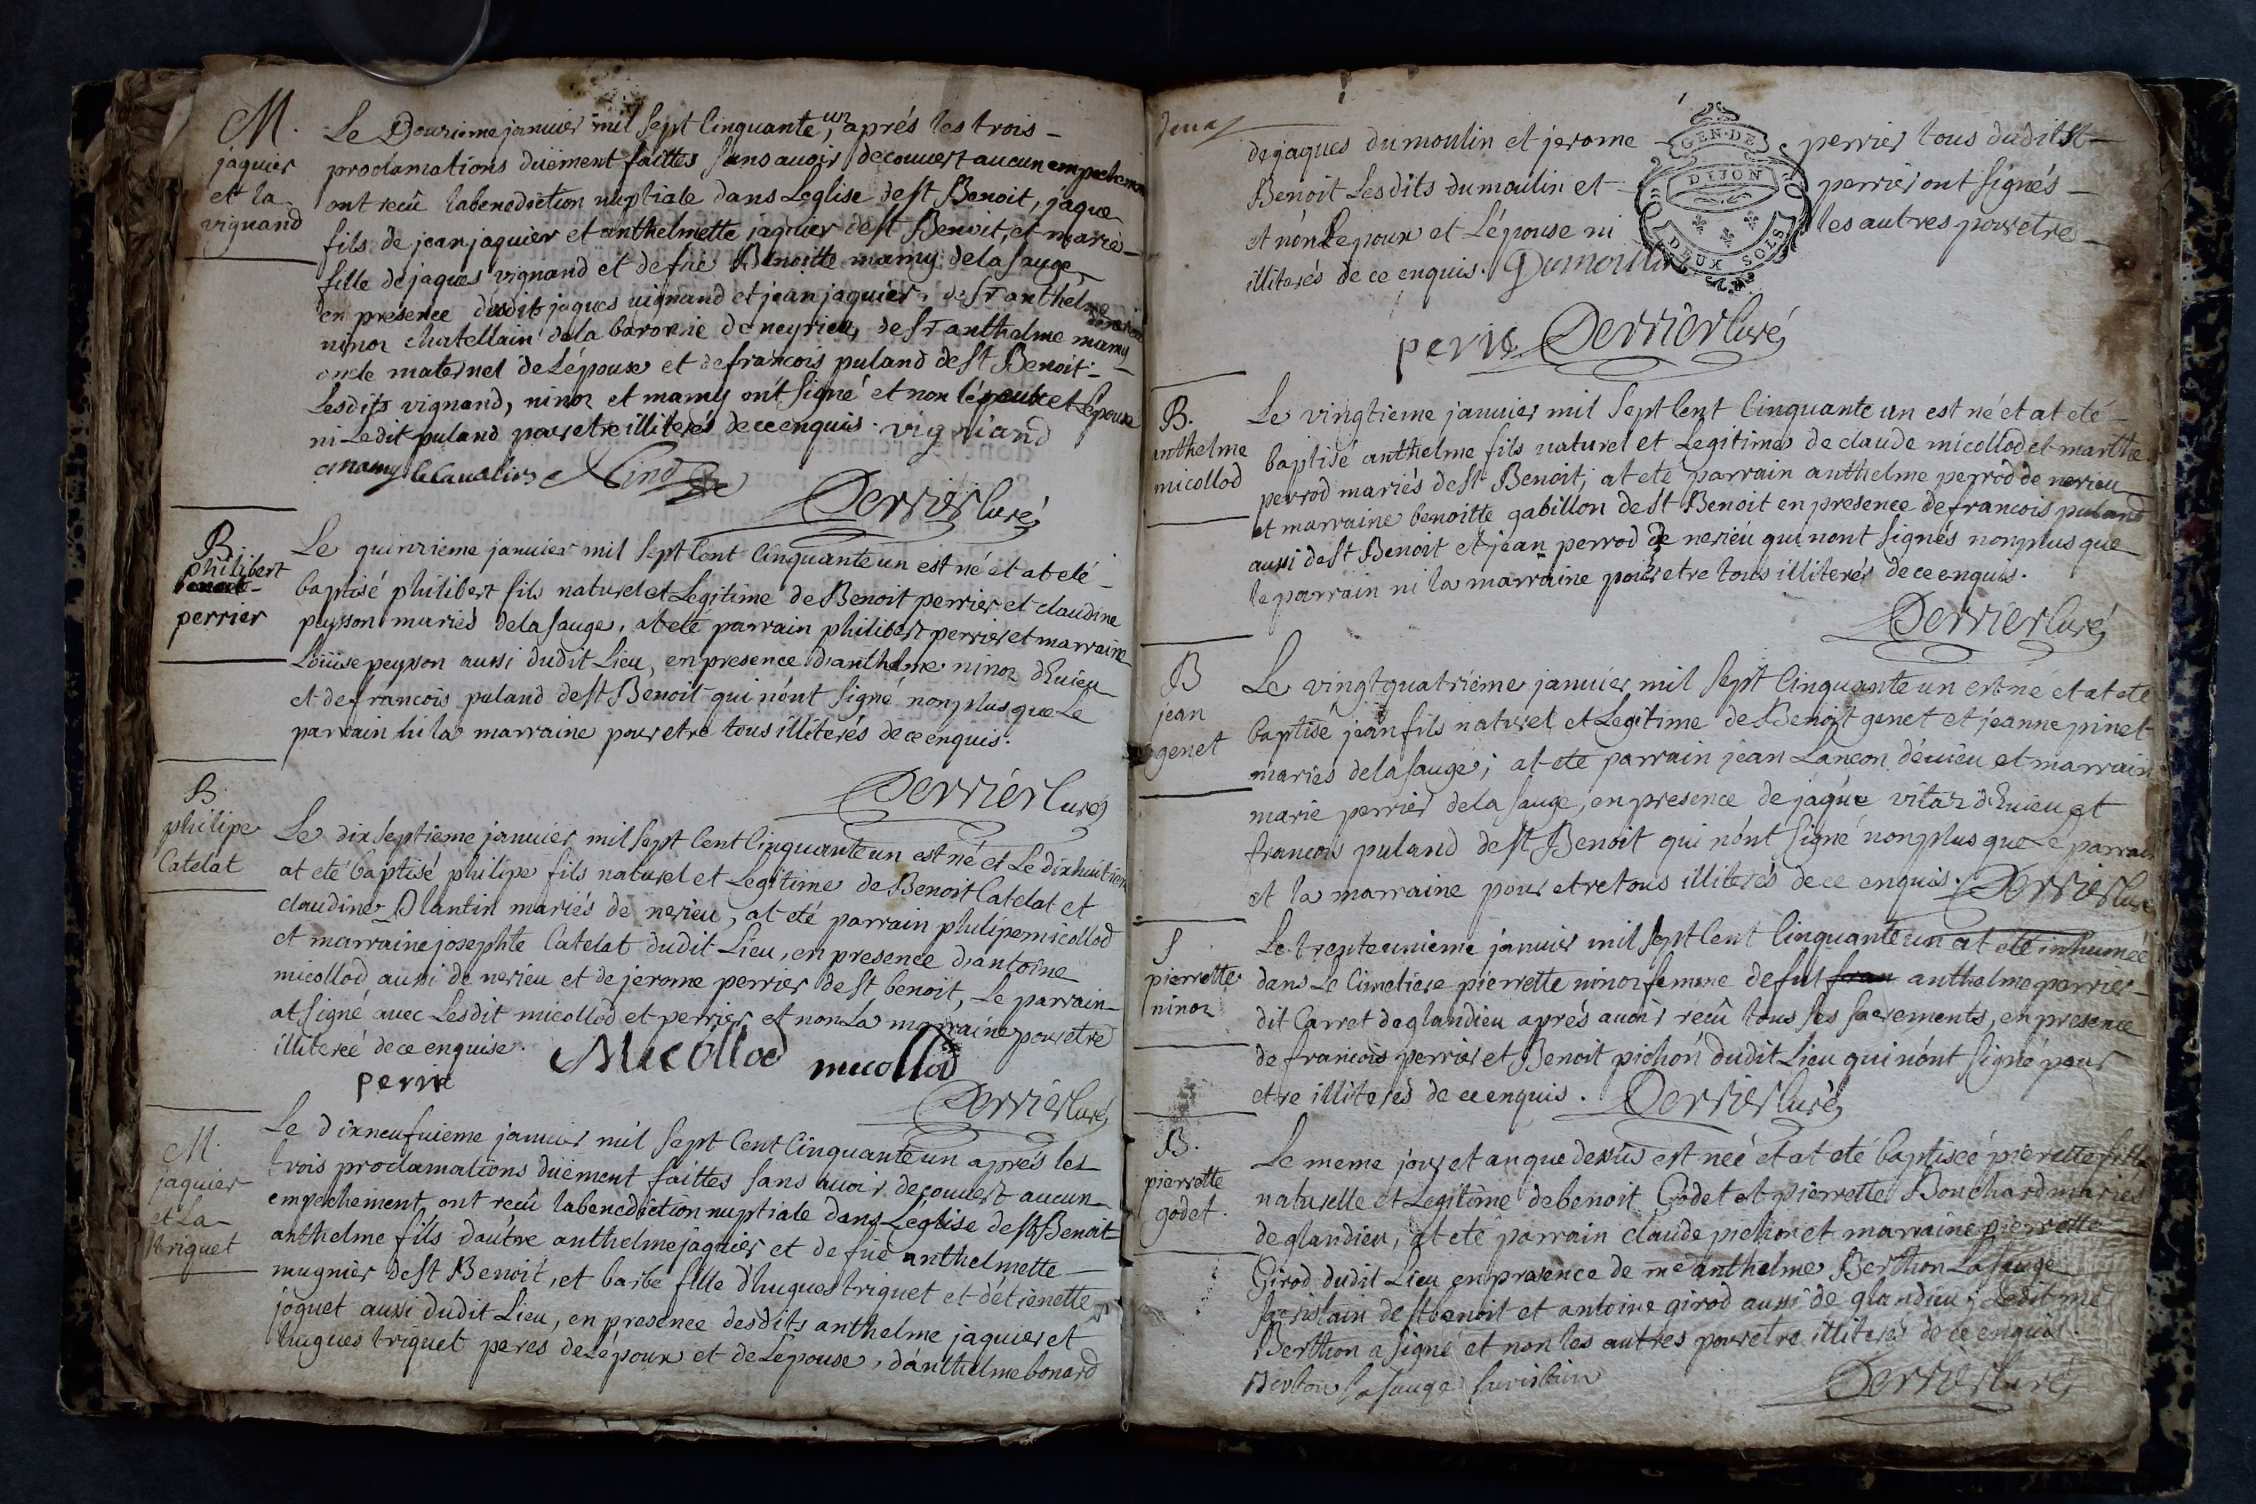 M.
jaquier
et la
vignand
Le Douzieme janvier mil sept Cinquante un, aprés les trois
proclamations düement faittes sans avoir decouvert aucun empechement
ont recû la benediction nuptiale dans Leglise de st Benoit, jaque
fils de jean jaquier et anthelmette jaquier de st Benoit, et marie
fille de jaques vignand et de fue Benoitte mamy de la sauge,
en presence dudit jaques vignand et jean jaquier, de sr anthelme
ninoz chatellain de la baronie de neyrieu, de sr anthelme mamy
oncle maternel de Lépouse et de francois puland de st Benoit
Lesdits vignand, ninoz et mamy ont signé et non lépoux et Lépouse
ni Ledit puland pour etre illiterés de ce enquis. vignand
Perrier Curé
B
philibert
perrier
Le quinzieme janvier mil sept Cent Cinquante un est né et at eté
baptisé philibert fils naturel et Legitime de Benoit perrier et claudine
peysson mariés de la sauge, at eté parrain philibert perrier et marraine
Loüise peyson aussi dudit Lieu, en presence d'anthelme ninoz d'Evieu
et de francois puland de st Benoit qui n'ont signé non plus que Le
parrain ni la marraine pour etre tous illiterés de ce enquis.
Perrier Curé
B
philipe
Catelat
Le dix septieme janvier mil sept Cent Cinquante un est né et Le dixhuitiem
at eté baptisé philipe fils naturel et Legitime de Benoit Catelat et
claudine Plantin mariés de nerieu, at eté parrain philipe micollod
et marraine josephte Catelat dudit Lieu, en presence d'antoine
micollod aussi de nerieu et de jerome perrier de st benoit, Le parrain
at signé avec Lesdit micollod et perrier et non La marraine pour etre
illitereé de ce enquise. Micollod micollod
perrie
Perrier Curé
M.
jaquier
et La
triquet
Le dixneufvieme janvier mil sept Cent Cinquante un aprés les
trois proclamations düement faittes sans avoir decouvert aucun
empechement ont recû la benediction nuptiale dans Leglise de st Benoit
anthelme fils d'autre anthelme jaquier et de fue anthelmette
mugnier de st Benoit, et barbe fille d'hugues triquet et d'étienette
joquet aussi dudit Lieu, en presence desdits anthelme jaquier et
hugues triquet peres de Lépoux et de Lépouse, d'anthelme bonard
deux
de jaques dumoulin et jerome perrier tous dudit st
Benoit Lesdits dumoulin et perrier ont signés
et non Lepoux et Lépouse ni les autres pour etre
illiterés de ce enquis. Dumoulin
GEN. DE
DIJON
DEUX SOLS
perrie Perrier Curé
B.
anthelme
micollod
Le vingtieme janvier mil sept Cent Cinquante un est né et at eté
baptisé anthelme fils naturel et Legitime de claude micollod et marthe
perrod mariés de st Benoit; at eté parrain anthelme perrod de nerieu
et marraine benoitte gabillon de st Benoit en presence de francois puland
aussi de st Benoit et jean perrod de nerieu qui n'ont signés non plus que
le parrain ni la marraine pour etre tous illiterés de ce enquis.
Perrier Curé
B
jean
genet
Le vingt quatrieme janvier mil sept Cinquante un est né et at eté
baptisé jean fils naturel et Legitime de Benoit genet et jeanne pinet
mariés de la sauge; at eté parrain jean Lancon d'evieu et marraine
marie perrier de la sauge, en presence de jaque vitaz d'Evieu et
francois puland de st Benoit qui n'ont signé non plus que Le parrain
et la marraine pour etre tous illiterés de ce enquis. Perrier Curé
S
pierrette
ninoz
Le trente unieme janvier mil sept Cent Cinquante un at eté inhumeé
dans Le Cimetiere pierrette ninoz femme de fut fran anthelme perrier
dit Carret de glandieu aprés avoir recû tous ses sacrements, en presence
de francois perrier et Benoit pichon dudit Lieu qui n'ont signé pour
etre illiterés de ce enquis. Perrier Curé
B.
pierrette
godet.
Le meme jour et an que dessus est neé et at eté baptiseé pierrette fille
naturelle et Legitime de benoit Godet et pierrette Bouchard mariés
de glandieu, at eté parrain claude pichon et marraine pierrette
Girod dudit Lieu en presence de me anthelme Berthon La sauge
sacristain de st benoit et antoine girod aussi de glandieu; Ledit me
Berthon a signé et non les autres pour etre illiterés de ce enquis.
Perrier Curé